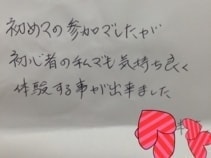 初めての参加でしたが
初心者の私でも気持ち良く
体験する事が出来ました